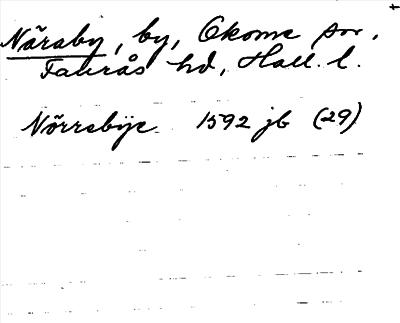 Näraby, by, Okome sn,
Faurås hd, Hall. l.
Nörrebÿe 1592 jb (29)